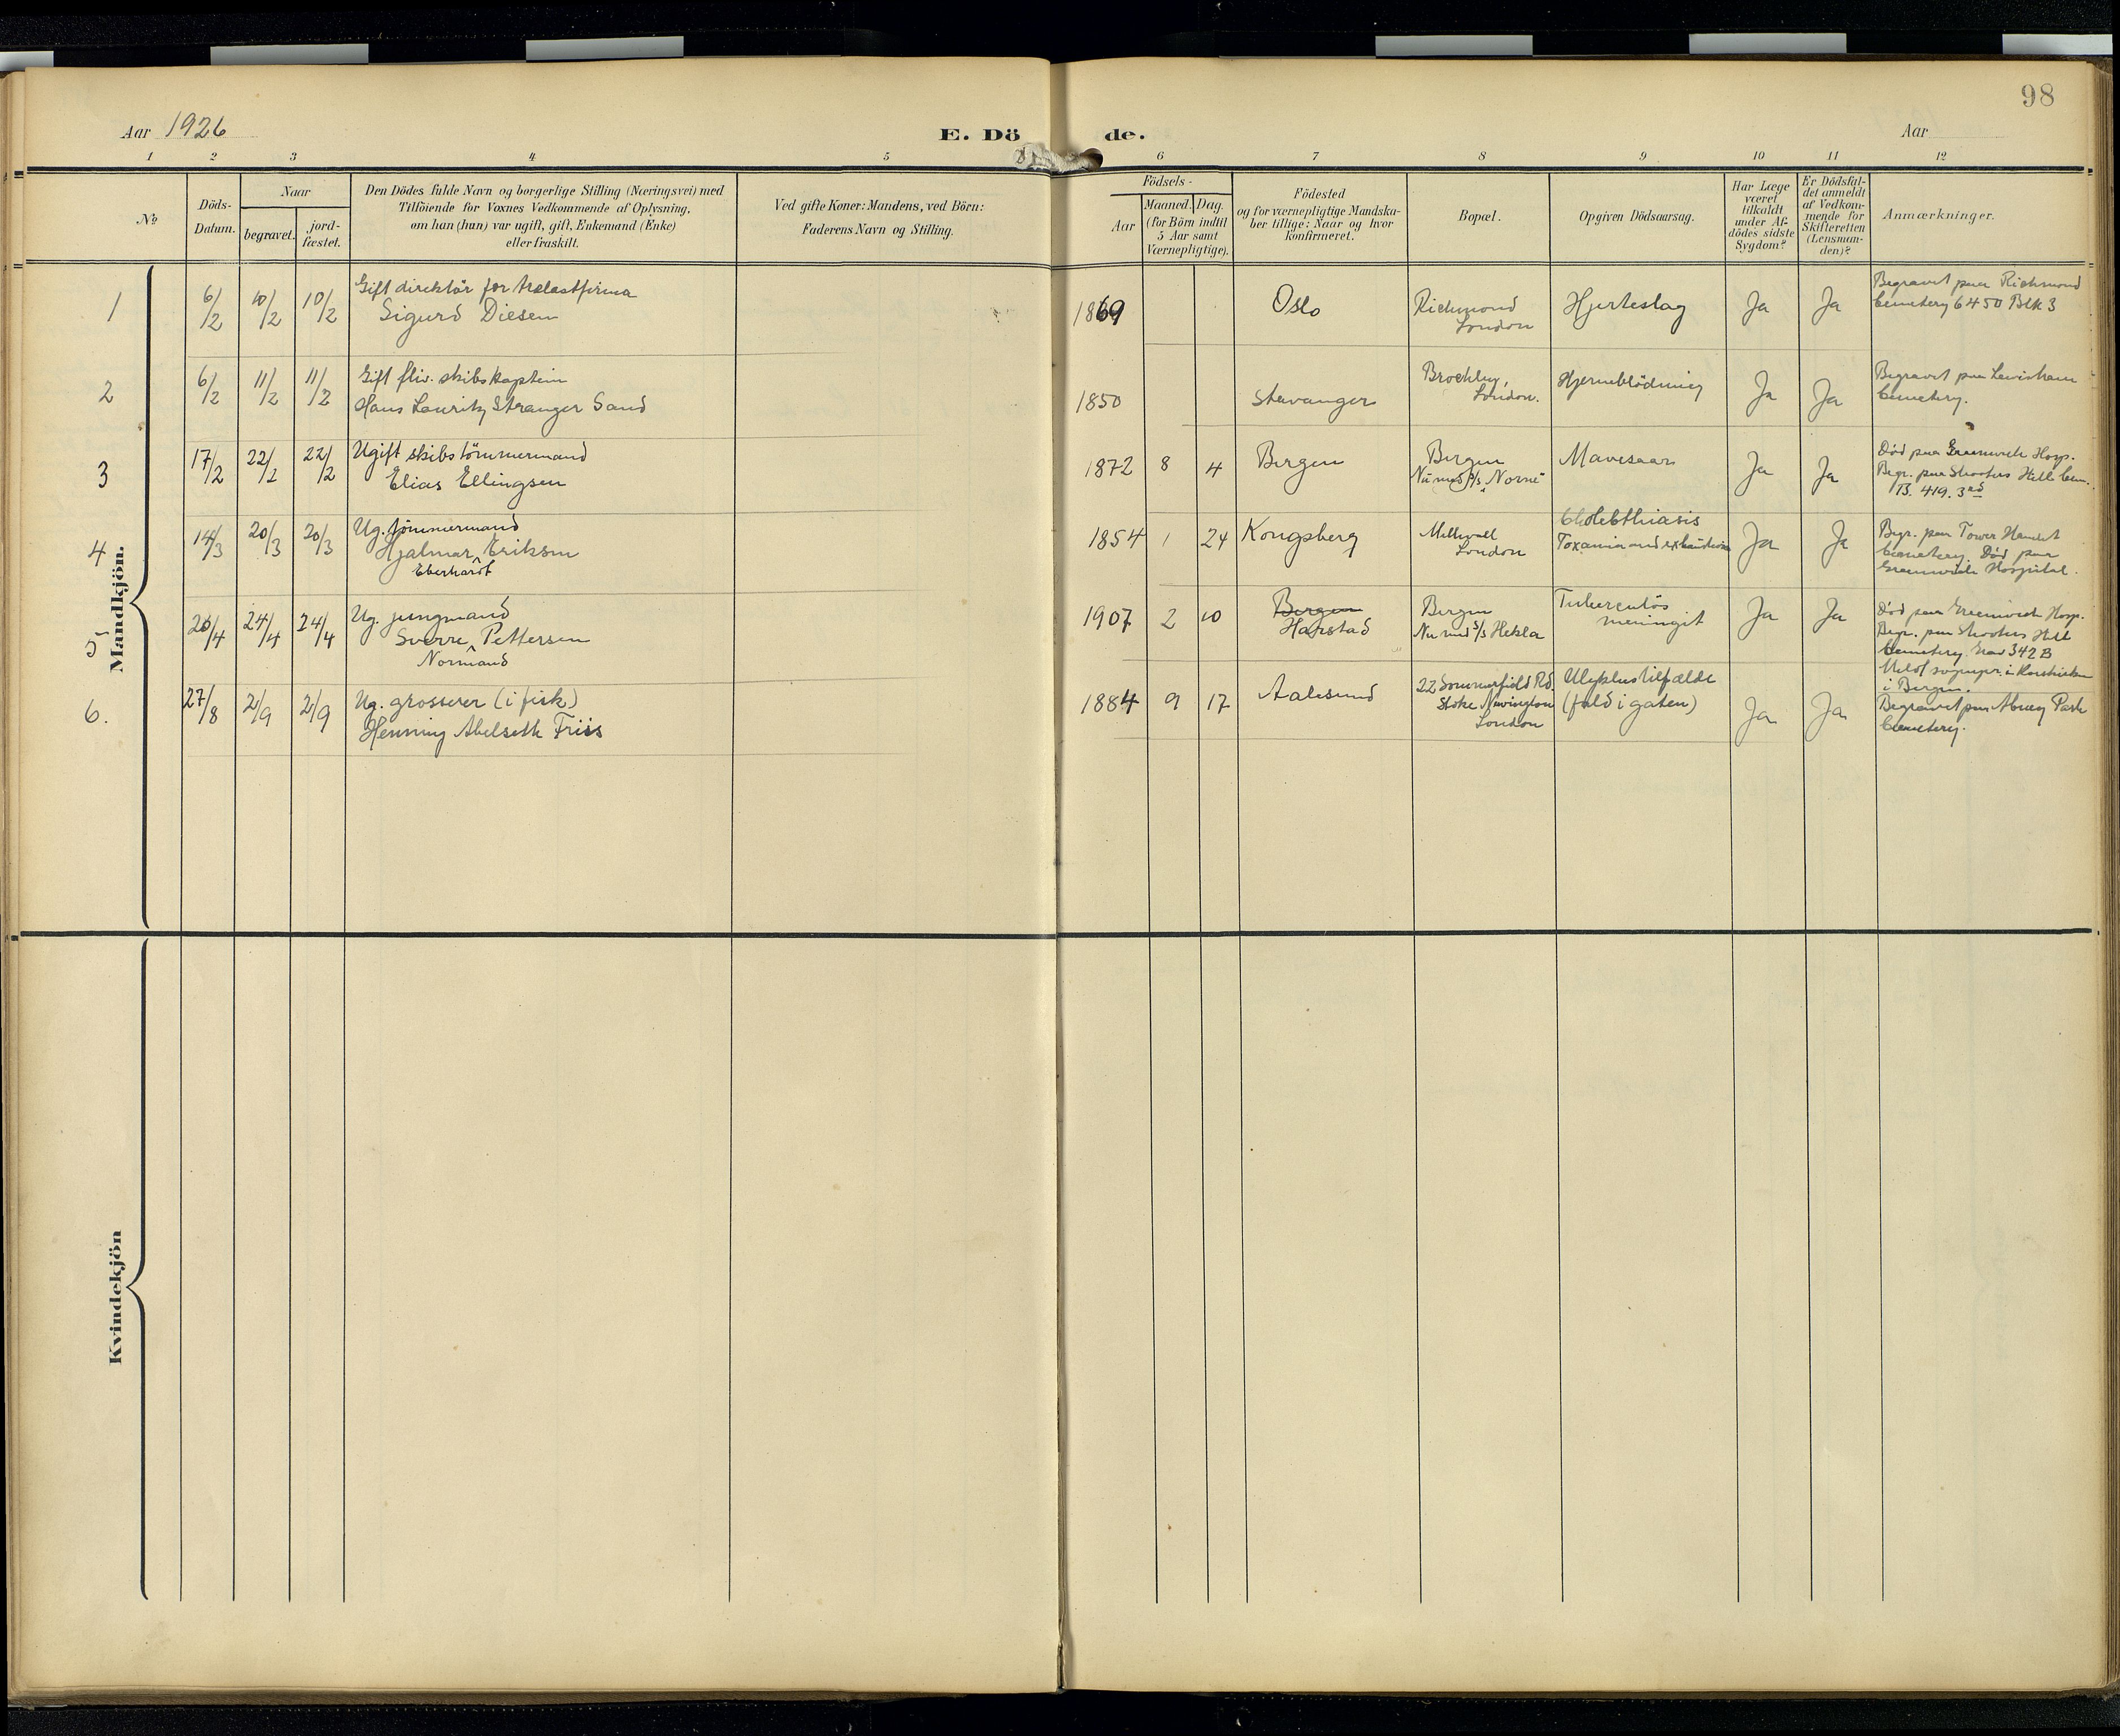 98
Aar 1926
E. Dö de.
Aar
1 2 3 4 5 6 7 8 9 10 11 12
No
Döds-Datum.
Naar
begravet.
jord-fæstet.
Den Dödes fulde Navn og borgerlige Stilling (Næringsvei) med
Tilföiende for Voxnes Vedkommende af Oplysning,
om han (hun) var ugift, gift, Enkemand (Enke)
eller fraskilt.
Ved gifte Koner: Mandens, ved Börn:
Faderens Navn og Stilling.
Födsels-
Aar
Maaned. Dag.
(for Börn indtil
5 Aar samt
Værnepligtige).
Födested
og for værnepligtige Mandska-
ber tillige: Naar og hvor
Konfirmeret.
Bopæl.
Opgiven Dödsaarsag.
Har Læge
været
tilkaldt
under Af-
dödes sidste
Sygdom?
Er Dödsfal-
det anmeldt
af Vedkom-
mende for
Skifteretten
(Lensman-
den)?
Anmærkninger.
Mandkjön.
1
6/2 10/2 10/2
Gift direktör for trælastfirma
Sigurd Diesen
1869
Oslo
Richmond
London
Hjerteslag
Ja Ja
Begravet paa Richmond
Cemetery 6450 Blk 3
2
6/2 11/2 11/2
Gift skibskaptein
Hans Lauritz Stranger Sand
1850
Stavanger
Brockley,
London.
Hjerneblödning
Ja Ja
Begravet paa Lewisham
Cemetery.
3
17/2 22/2 22/2
Ugift skibstömmermand
Elias Ellingsen
1872 8 4
Bergen
Bergen
s/s "Norne"
Mavesaar
Ja Ja
Död paa Greenwich Hosp.
Begr. paa Shooters Hill Cem.
B. 419. 3rd
4
14/3 20/3 20/3
Ug. tömmermand
Hjalmar Eriksen
Eberhardt
1854 1 24
Kongsberg
Millwall
London
Cholelithiasis
Toxamia and exhaustion
Ja Ja
Begr. paa Tower Hamlet
Cemetery. Död paa
Greenwich Hospital.
5
20/4 24/4 24/4
Ug. jungmand
Sverre Pettersen
Normand
1907 2 10
Bergen
Harstad
Bergen
Nu med s/s Hekla
Tuberculös
meningit
Ja Ja
Död paa Greenwich Hosp.
Begr. paa Shooters Hill
Cemetery. Grav 342 B
Meldt sognepr. i Korskirken
i Bergen.
6.
27/8 2/9 2/9
Ug. grosserer (i fisk)
Henning Abelseth Friis
1884 9 17
Aalesund
22 Sommerfield Rd.
Stoke Newington
London
Ulykkestilfælde
(fald i gaten)
Ja Ja
Begravet paa Abney Park
Cemetery.
Kvindekjön